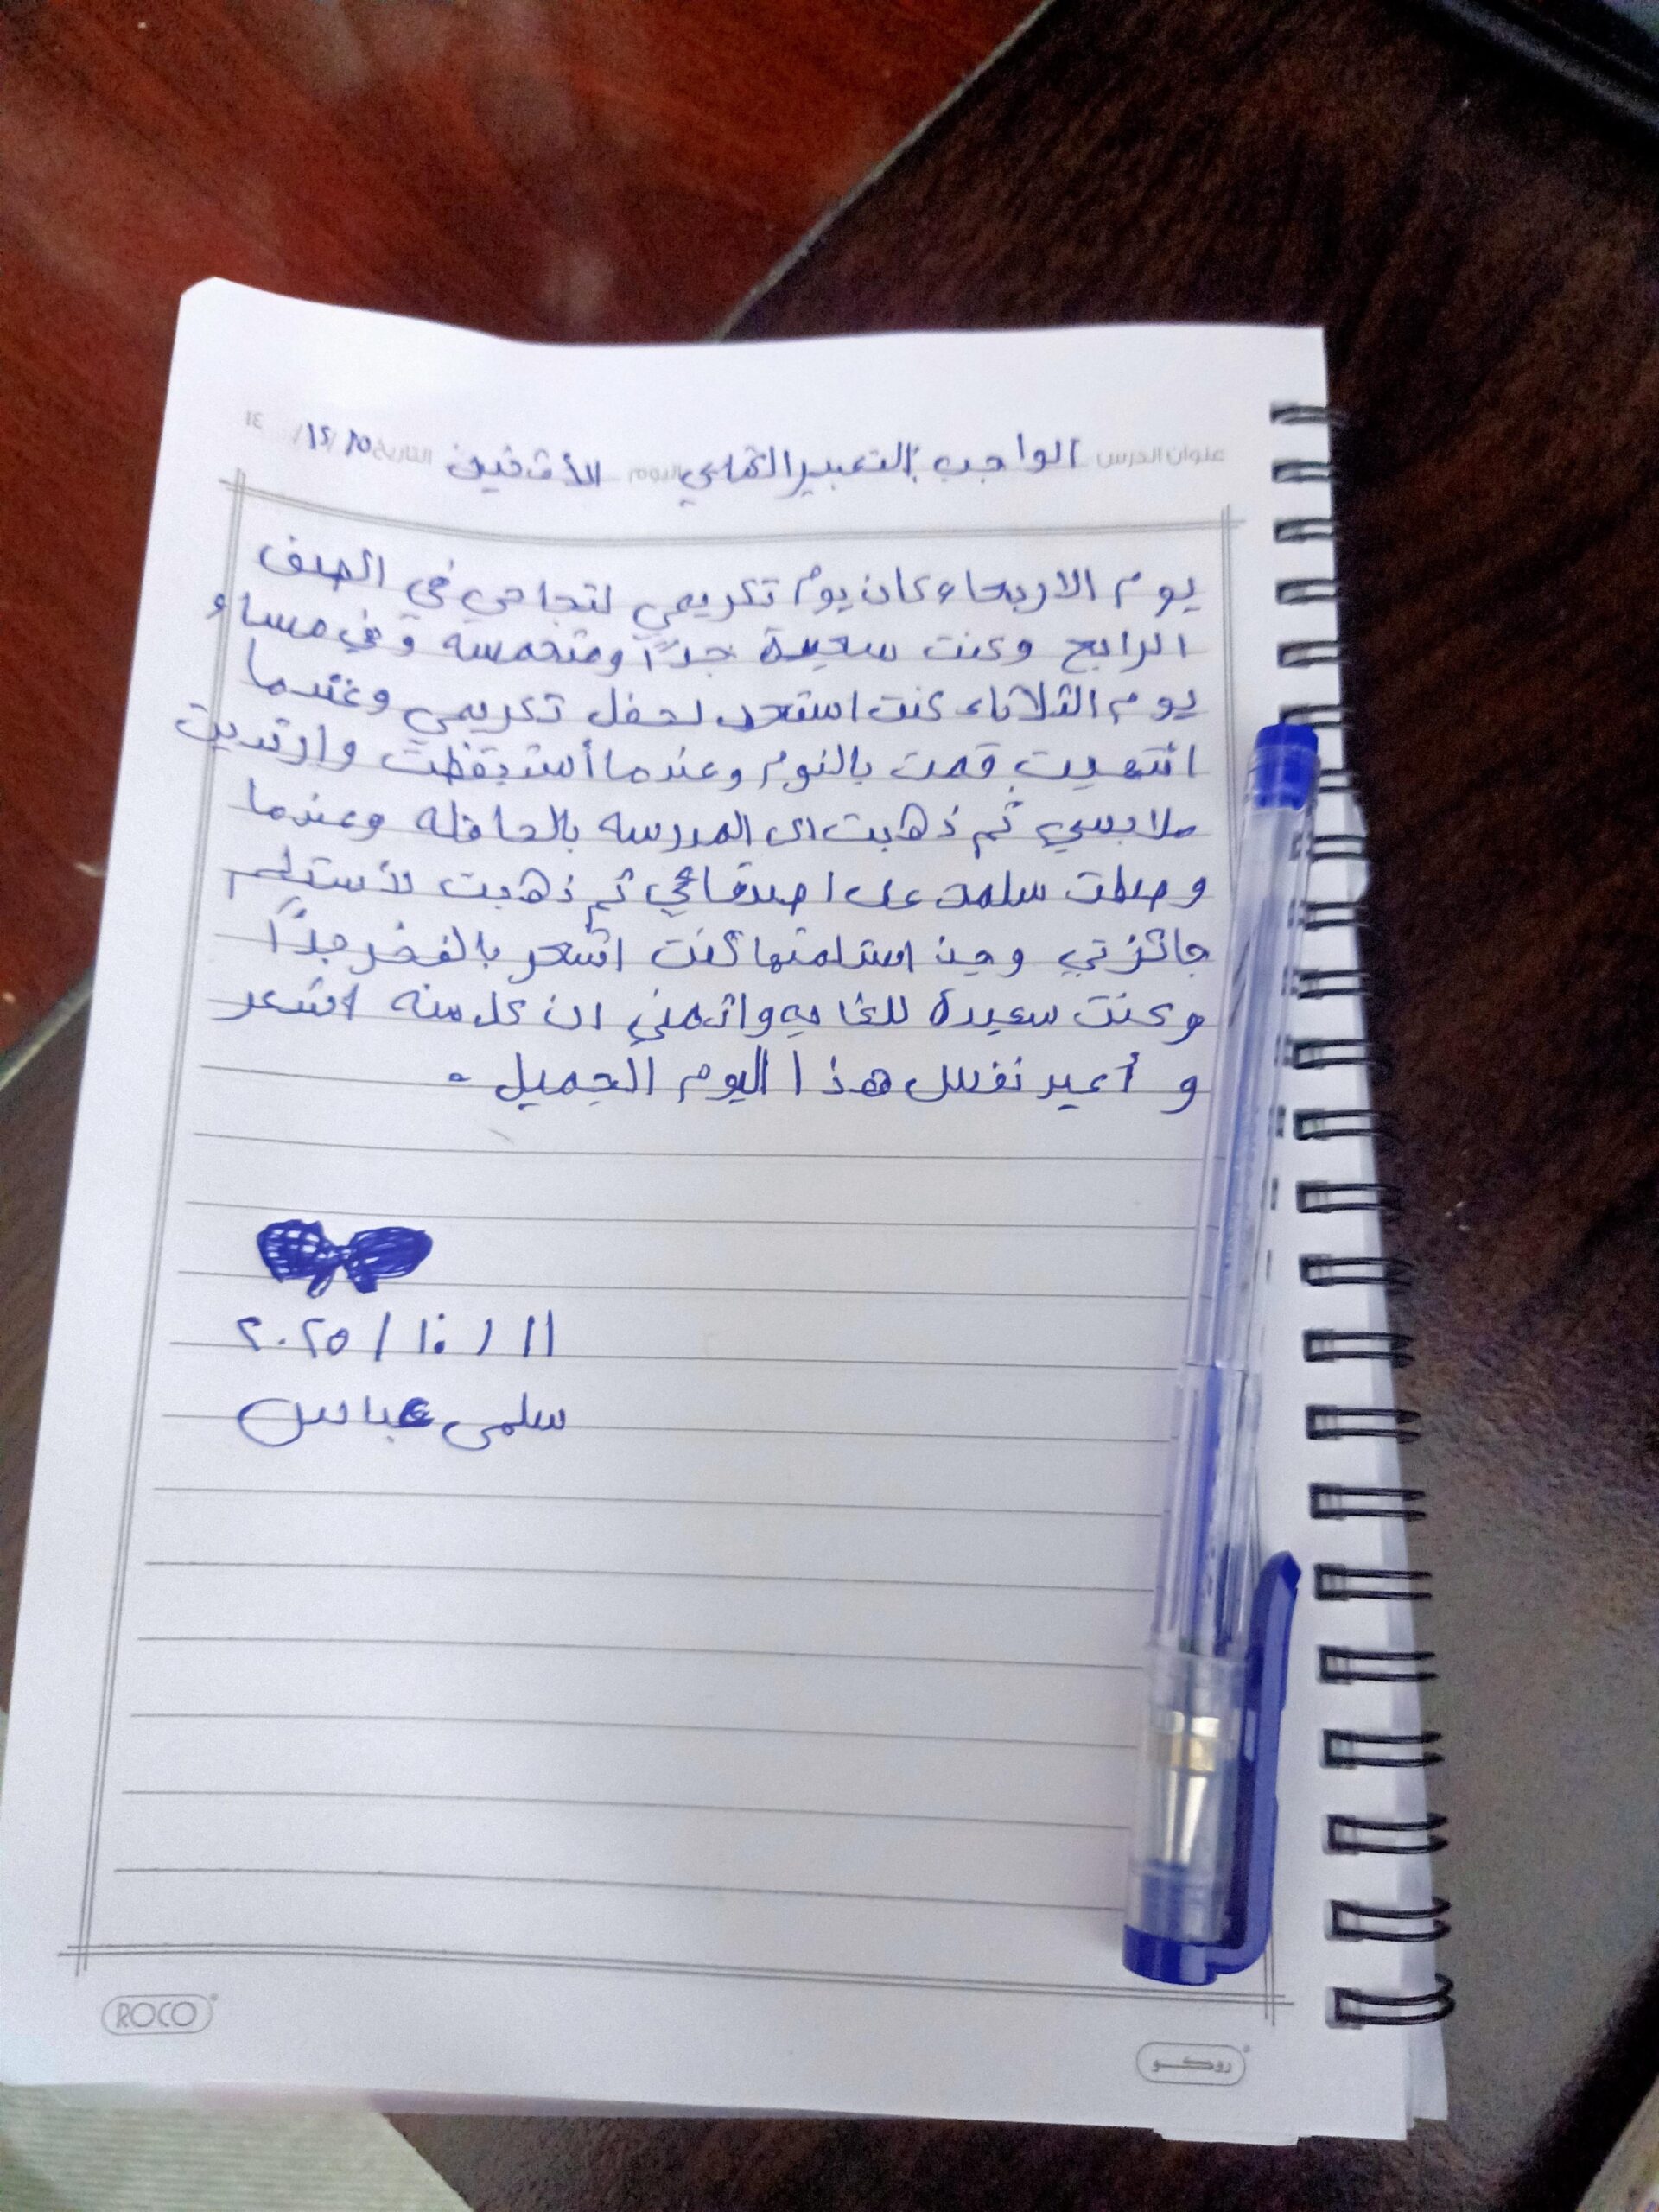 عنوان الدرس الواجب التعبير الكتابي اليوم الأثنين التاريخ
يوم الاربعاء كان يوم تكريمي لنجاحي في الصف
الرابع وكنت سعيدة جدًا ومتحمسه وفي مساء
يوم الثلاثاء كنت استعد لحفل تكريمي وعندما
انتهيت قمت بالنوم وعندما أستيقظت وارتديت
ملابسي ثم ذهبت الى المدرسه بالحافله وعندما
وصلت سلمت على اصدقائي ثم ذهبت لأستلم
جائزتي وحين استلمتها كنت اشعر بالفخر جدًا
وكنت سعيدة للغايه واتمنى ان كل سنه اشعر
و أعيد نفس هذا اليوم الجميل .
١١ / ١٠ / ٢٠٢٥
سلمى عباس
ROCO
روكو